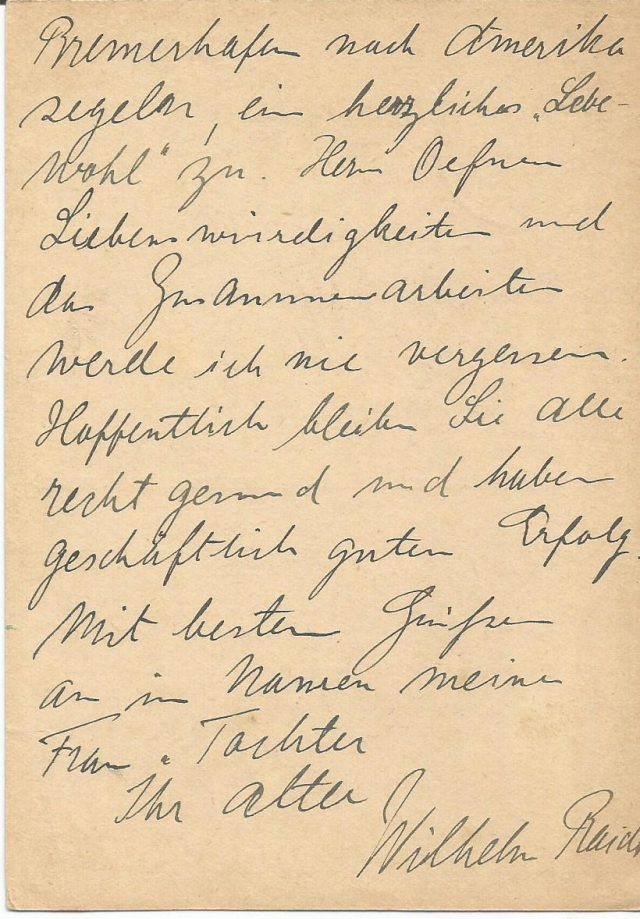 Bremerhafen nach Amerika
segeln, ein herzliches „Lebe-
wohl" zu. Ihren
Liebenswürdigkeiten und
das Zusammenarbeiten
werde ich nie vergessen.
Hoffentlich bleiben Sie alle
recht gesund und haben
geschäftlich guten Erfolg.
Mit besten Grüßen
an im Namen meiner
Frau u. Tochter
Ihr alter
Wilhelm